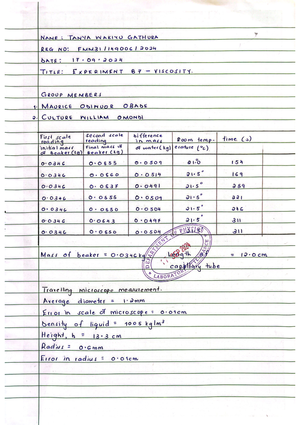 NAME: TANYA WAKIYU GATHURA
REG NO: FMM31/ /2024
DATE: 17.09.2024
TITLE: EXPERIMENT B9 - VISCOSITY.
GROUP MEMBERS
1. MAURICE ODINUOR OBADE
2. CULTURE WILLIAM OMONDI
First scale reading Second scale reading Difference in mass Room temp- time (s)
Initial mass of beaker (kg) Final mass of beaker (kg) of water (kg) erature (°c)
0.0346 0.0855 0.0509 21.0 154
0.0346 0.0860 0.0514 21.5° 169
0.0346 0.0837 0.0491 21.5° 259
0.0346 0.0855 0.0509 21.5° 221
0.0346 0.0850 0.0504 21.5° 246
0.0346 0.0843 0.0497 21.5° 311
0.0346 0.0850 0.0504 311
Mass of beaker = 0.0346kg Length of = 12.0cm
capillary tube
DEPARTMENT OF PHYSICS
LABORATORY
2024
Travelling microscope measurement:
Average diameter = 1.2mm
Error in scale of microscope = 0.01cm
Density of liquid = 1008 kg/m³
Height, h = 13.3 cm
Radius = 0.6mm
Error in radius = 0.01cm